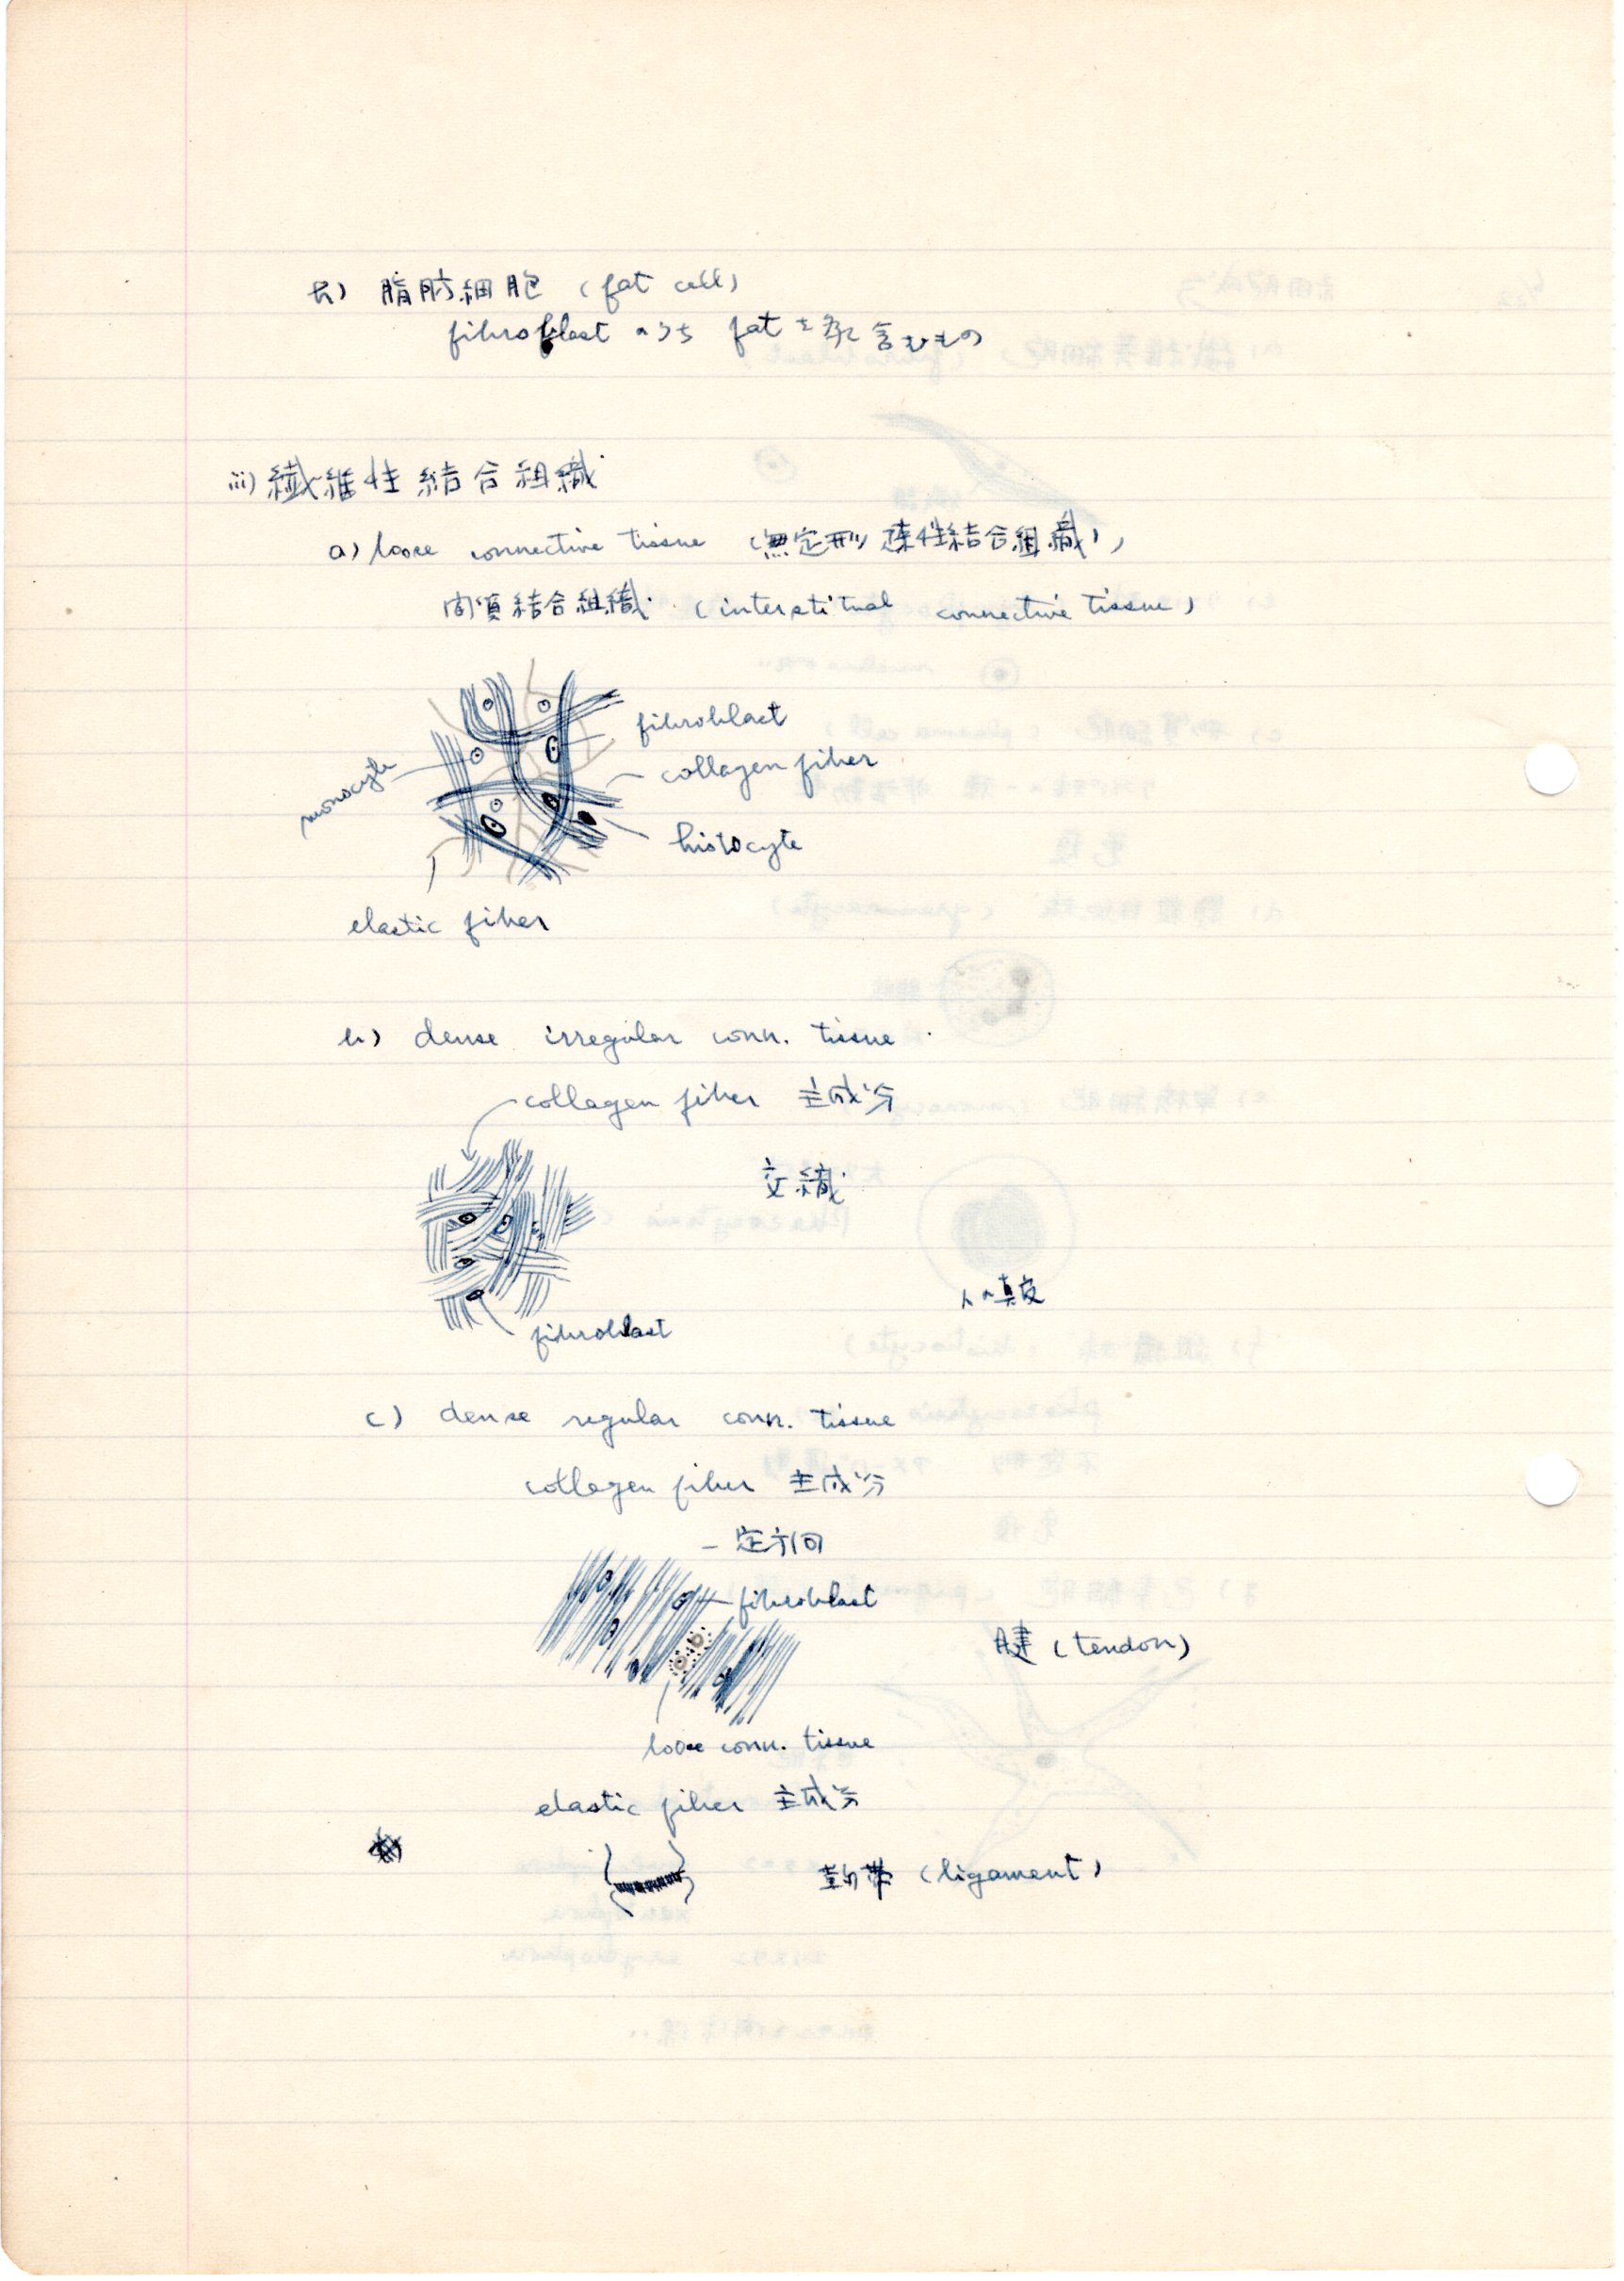 h) 脂肪細胞 (fat cell)
fibroblast のうち fat を多く含むもの
iii) 繊維性結合組織
a) loose connective tissue (無定形 疎性結合組織),
間質結合組織 (interstitual connective tissue)
fibroblast
collagen fiber
monocyte
histocyte
elastic fiber
b) dense irregular conn. tissue
collagen fiber 主成分
交織
人の真皮
fibroblast
c) dense regular conn. tissue
collagen fiber 主成分
一定方向
fibroblast
腱 (tendon)
loose conn. tissue
elastic fiber 主成分
靭帯 (ligament)